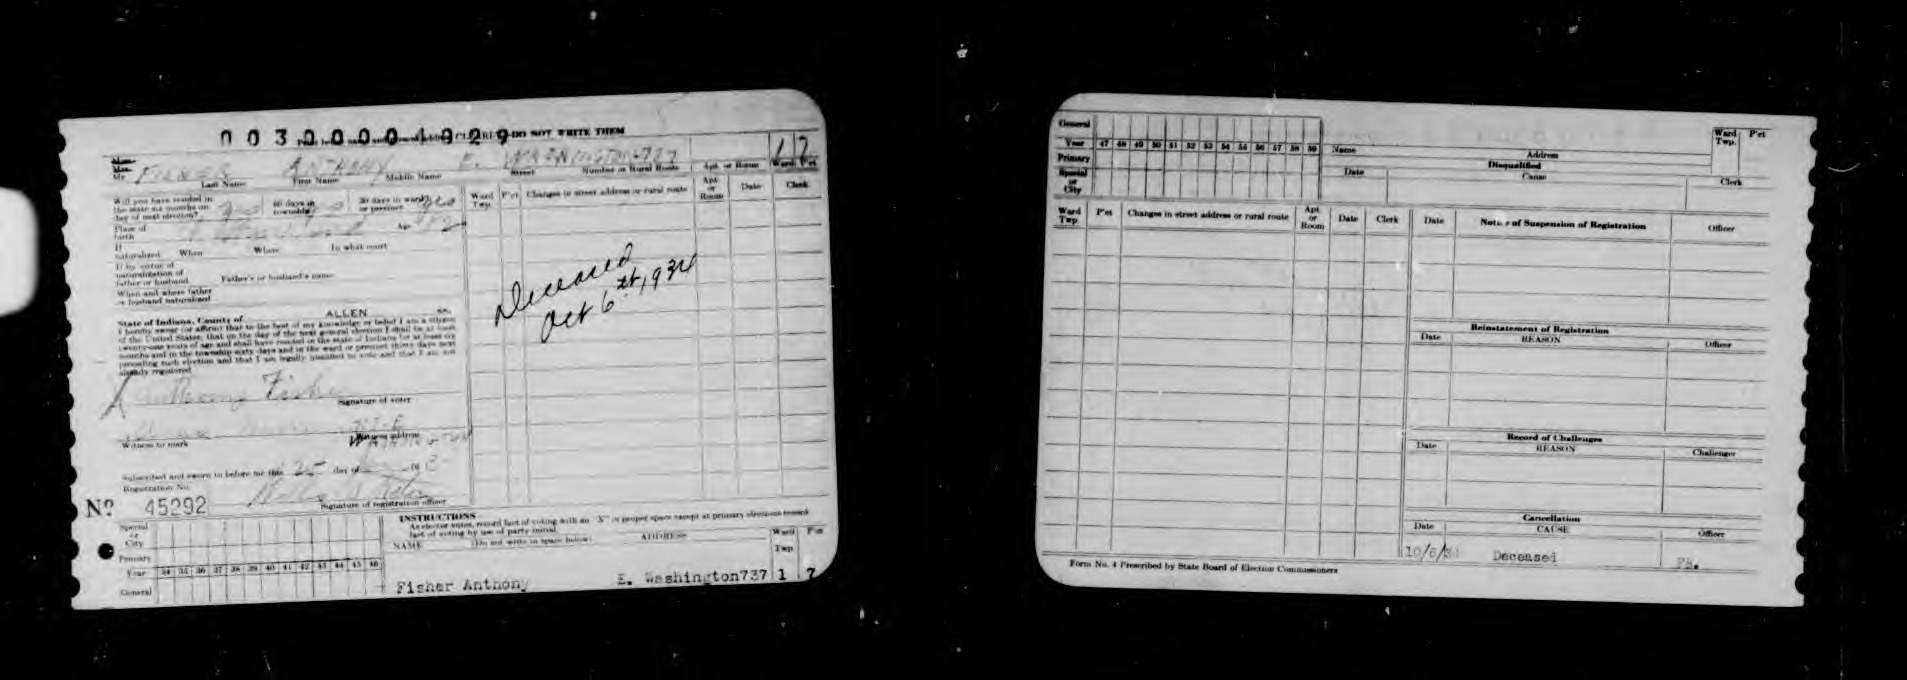 0030000 4929
DO NOT WRITE THEM
Mr. FISHER ANTHONY E. WASHINGTON 737 1 7
Last Name First Name Middle Name Street Number or Rural Route Apt. or Room Ward P'ct
Will you have resided in the state six months on day of next election? yes 60 days in township? yes 30 days in ward or precinct yes
Place of birth Age
If naturalized When Where In what court
If by virtue of naturalization of father or husband Father's or husband's name
When and where father or husband naturalized
State of Indiana, County of ALLEN ss.
I hereby swear (or affirm) that to the best of my knowledge or belief I am a citizen
of the United States; that on the day of the next general election I shall be at least
twenty-one years of age and shall have resided in the state of Indiana for at least six
months and in the township sixty days and in the ward or precinct thirty days next
preceding such election and that I am legally qualified to vote and that I am not
already registered
X Anthony Fisher
Signature of voter
Witness to mark Witness address
Subscribed and sworn to before me this 25 day of 19
Registration No.
Nº 45292
Signature of registration officer
Ward Twp. P'ct Changes in street address or rural route Apt. or Room Date Clerk
Deceased
Oct 6th, 1934
Special or City
Primary
Year 34 35 36 37 38 39 40 41 42 43 44 45 46
General
INSTRUCTIONS
As elector votes, record fact of voting with an "X" in proper space except at primary elections record
fact of voting by use of party initial
NAME (Do not write in space below) ADDRESS Ward Twp. P'ct
Fisher Anthony E. Washington 737 1 7
General
Year 47 48 49 50 51 52 53 54 55 56 57 58 59
Primary
Special or City
Name Address Ward Twp. P'ct
Disqualified
Date Cause Clerk
Ward Twp P'ct Changes in street address or rural route Apt. or Room Date Clerk
Date Notice of Suspension of Registration Officer
Reinstatement of Registration
Date REASON Officer
Record of Challenges
Date REASON Challenger
Cancellation
Date CAUSE Officer
10/6/34 Deceased
Form No. 4 Prescribed by State Board of Election Commissioners